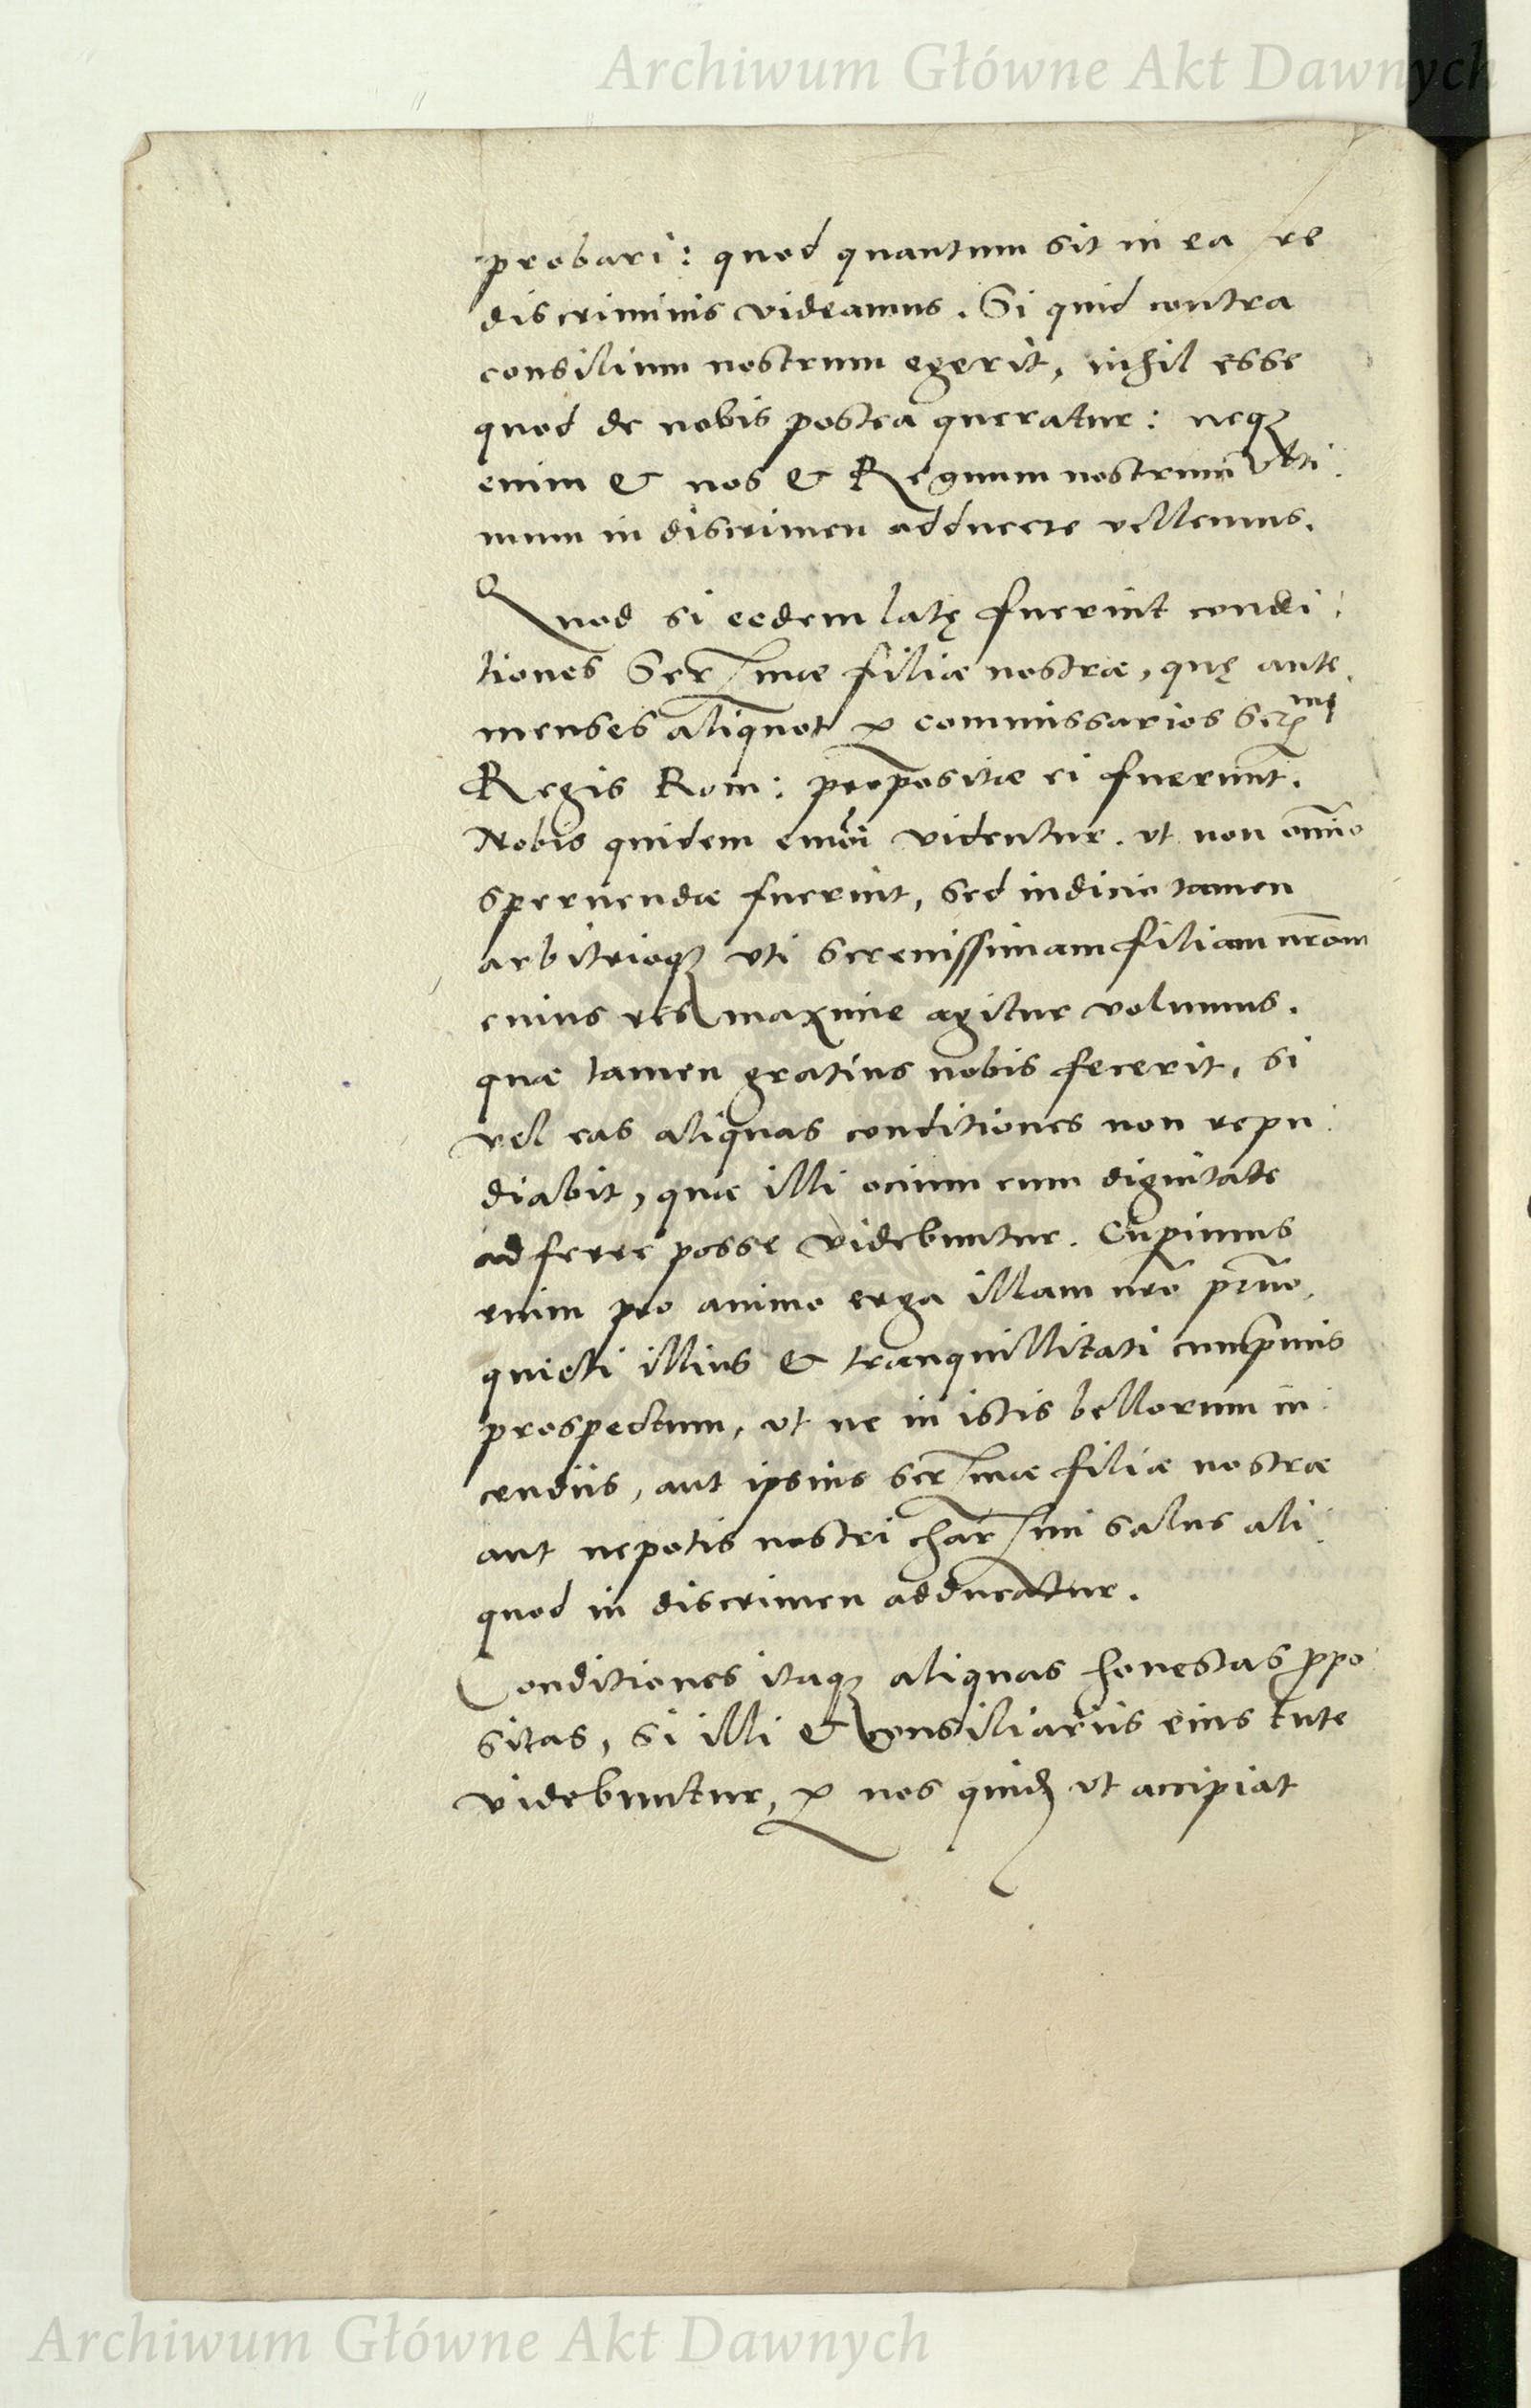 Archiwum Główne Akt Dawnych
probari: quod quantum sit in ea re
discriminis videamus. Si quid contra
consilium nostrum egerit, nihil esse
quod de nobis postea queratur: neqꝫ
enim & nos & Regnum nostrum ulti
mum in discrimen adducere vellemus.
Quod si eedem latę fuerint condi
tiones Serᵐae filiæ nostræ, quę ante
menses aliquot ꝑ commissarios Serᵐⁱ
Regis Rom: propositæ ei fuerunt.
Nobis quidem videntur. ut non om̃ino
spernendæ fuerint, sed iudicio tamen
arbitrioqꝫ uti serenissimam filiam nr̃am
cuius res maxime agitur volumus.
quæ tamen gratius nobis fecerit, si
vel eas aliquas conditiones non repu
diabit, quæ illi ocium cum dignitate
adferre posse videbuntur. Cupimus
enim pro animo erga illam nr̃o pr̃no,
quieti illius & tranquillitati cumprimis
prospectum, ut ne in istis bellorum in
cendiis, aut ipsius serᵐae filiæ nostræ
aut nepotis nostri charᵐi salus ali
quod in discrimen adducatur.
Conditiones itaqꝫ aliquas honestas ꝓpo
sitas, si illi & consiliariis eius tute
videbuntur, ꝑ nos quidẽ ut accipiat
Archiwum Główne Akt Dawnych